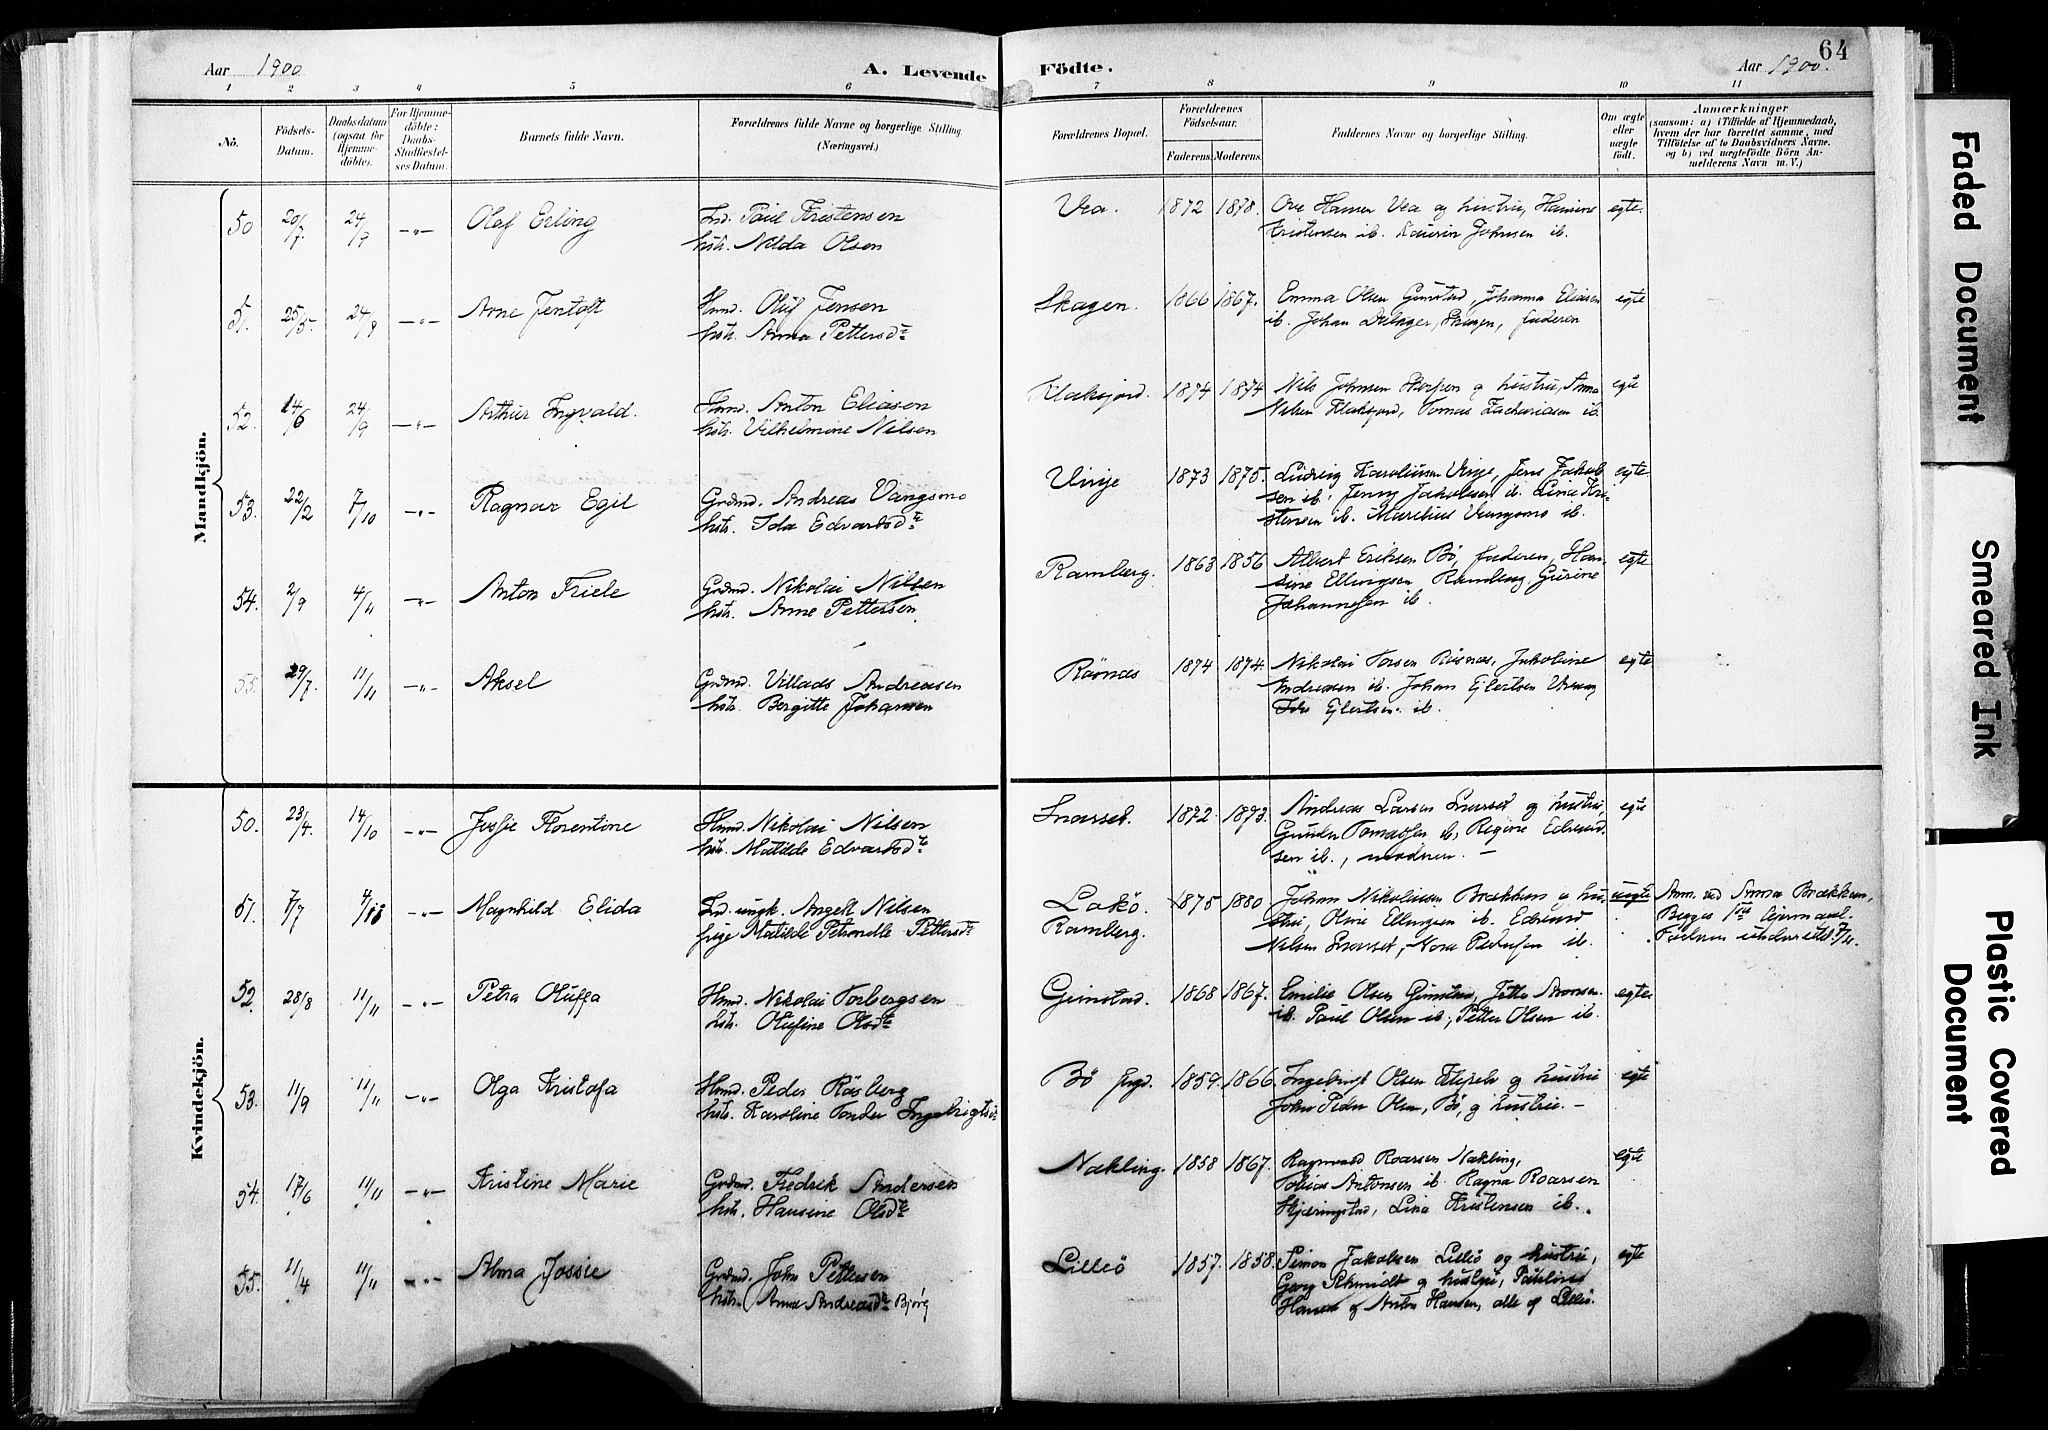 64
Aar 1900
A. Levende Födte.
Aar 1900.
1 2 3 4 5 6 7 8 9 10 11
No.
Födsels-
Datum.
Daabsdatum
(ogsaa for
Hjemme-
döbte).
For Hjemme-
döbte:
Daabs-
Stadfæstel-
ses Datum.
Barnets fulde Navn.
Forældrenes fulde Navne og borgerlige Stilling.
(Næringsvei.)
Forældrenes Bopæl.
Forældrenes
Födselsaar.
Faderens. Moderens.
Faddernes Navne og borgerlige Stilling.
Om ægte
eller
uægte
födt.
Anmærkninger
(saasom: a) i Tilfælde af Hjemmedaab,
hvem der har forrettet samme, med
Tilföielse af to Daabsvidners Navne.
og b) ved uægtefödte Börn An-
melderens Navn m. V.)
Mandkjön.
50 20/7. 24/9 —"— Olaf Erling
Ind. Paul Kristensen
hstr. Nilda Olsen
Vea. 1872 1878.
Ove Hansen Vea og hustru, Hansine
Kristensen ib. Johnsen ib.
egte.
51. 25/5. 24/9 —"— Arne Jentoft
Hmd. Oluf Jensen
hstr. Anna Pettersdtr
Skagen. 1866 1867.
Emma Olsen Gimstad, Johanna Eliasen
ib. Johan Skagen, faderen
egte
52. 14/6 24/9 —"— Arthur Ingvald.
Hmd. Anton Eliasen
hstr. Vilhelmine Nilsen
Klaksjord. 1874 1874
Nils Johnsen og hustru, Anna
Nilsen Klaksjord, Tomas Zachariasen ib.
egte
53. 22/2 7/10 —"— Ragnar Egil
Grdmd. Andreas Vangsmo
hstr. Ida Edvardsdtr
Vinje 1873 1875.
Ludvig Karoliusen Vinje, Jens Jakob-
sen ib. Jenny Jakobsen ib. Lina Kri-
stensen ib. Marelius Vangsmo ib.
egte
54. 2/9 4/11 —"— Anton Friele
Grdmd. Nikolai Nilsen
hstr. Anne Pettersen
Ramberg. 1863 1856
Albert Eriksen Bö, faderen, Han-
sine Ellingsen, Ramberg, Gurine
Johannesen ib.
egte
55. 29/7. 11/11 —"— Aksel
Grdmd. Villads Andreasen
hstr. Bergitte Johansen
Rösnæs 1874 1874.
Nikolai Rösnæs, Jakobine
Andreasen ib. Johan Ejlertsen
Ida Ejlertsen ib.
egte
Kvindekjön.
50. 23/4. 14/10 —"— Jessie Florentine
Hmd. Nikolai Nilsen
hstr. Matilde Edvardsdtr
Snarset. 1872 1873.
Andreas Larsen Snarset og hustru,
Gunder Tomassen ib, Regine Edvard-
sen ib., modren. —
egte
51. 7/7 4/11 —"— Magnhild Elida
Ind. ungk. Angell Nilsen
pige Matilde Petronelle Pettersdtr
Lakö.
Ramberg.
1875 1880
Johan Nikolaisen Brækken og hu-
stru, Oline Ellingsen ib. Edvard
Nilsen Snarset, Nora Pedersen ib.
uegte
Anm. ved Anna Brækken,
Begges 1ste leiermaal.
Faderen underrettet 7/11.
52. 28/8 11/11 —"— Petra Oluffa
Hmd. Nikolai Torbergsen
hstr. Olufine Olsdtr
Gimstad. 1868 1867.
Emilie Olsen Gimstad, Jette Aronsen
ib. Paul Olsen ib, Petter Olsen ib.
egte
53. 11/9 11/11 —"— Olga Kristofa
Hmd. Peder Røsberg
hstr. Karoline Tonder Ingebrigtsen
Bö Jngd. 1859. 1866
Ingebrigt Olsen og hustru
John Peder Olsen, Bö, og hustru. —
egte
54. 17/6 11/11 —"— Kristine Marie
Grdmd. Fredrik Andersen
hstr. Hansine Olsdtr
Nækling. 1858 1867.
Ragnvald Roarsen Nækling,
Tobias Antonsen ib. Ragna Roarsen
Hjæringstad, Lina Kristensen ib.
egte
55. 11/4 11/11 —"— Alma Jossie
Grdmd. John Pettersen
hstr. Anna Andreasdtr Bjørg
Lilleö 1857. 1858.
Simon Jakobsen Lilleö og hustru,
Georg Schmidt og hustru, Pauline
Hansen og Anton Hansen, alle af Lilleö.
egte
Faded Document
Smeared Ink
Plastic Covered
Document